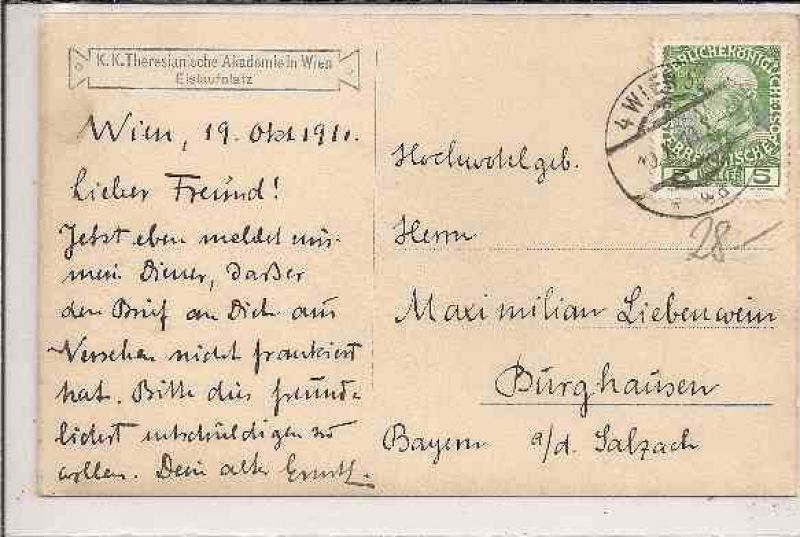 K. K. Theresianische Akademie in Wien
Eislaufplatz
Wien, 19. Okt. 1910.
Lieber Freund!
Jetzt eben meldet mir
mein Diener, daß er
den Brief an Dich aus
Versehen nicht frankiert
hat. Bitte dies freund-
lichst entschuldigen zu
wollen. Dein alter Ernst.
4 WIEN
5 HELLER 5
Hochwohlgeb.
Herrn
28-
Maximilian Liebenwein
Burghausen
Bayern a/d. Salzach